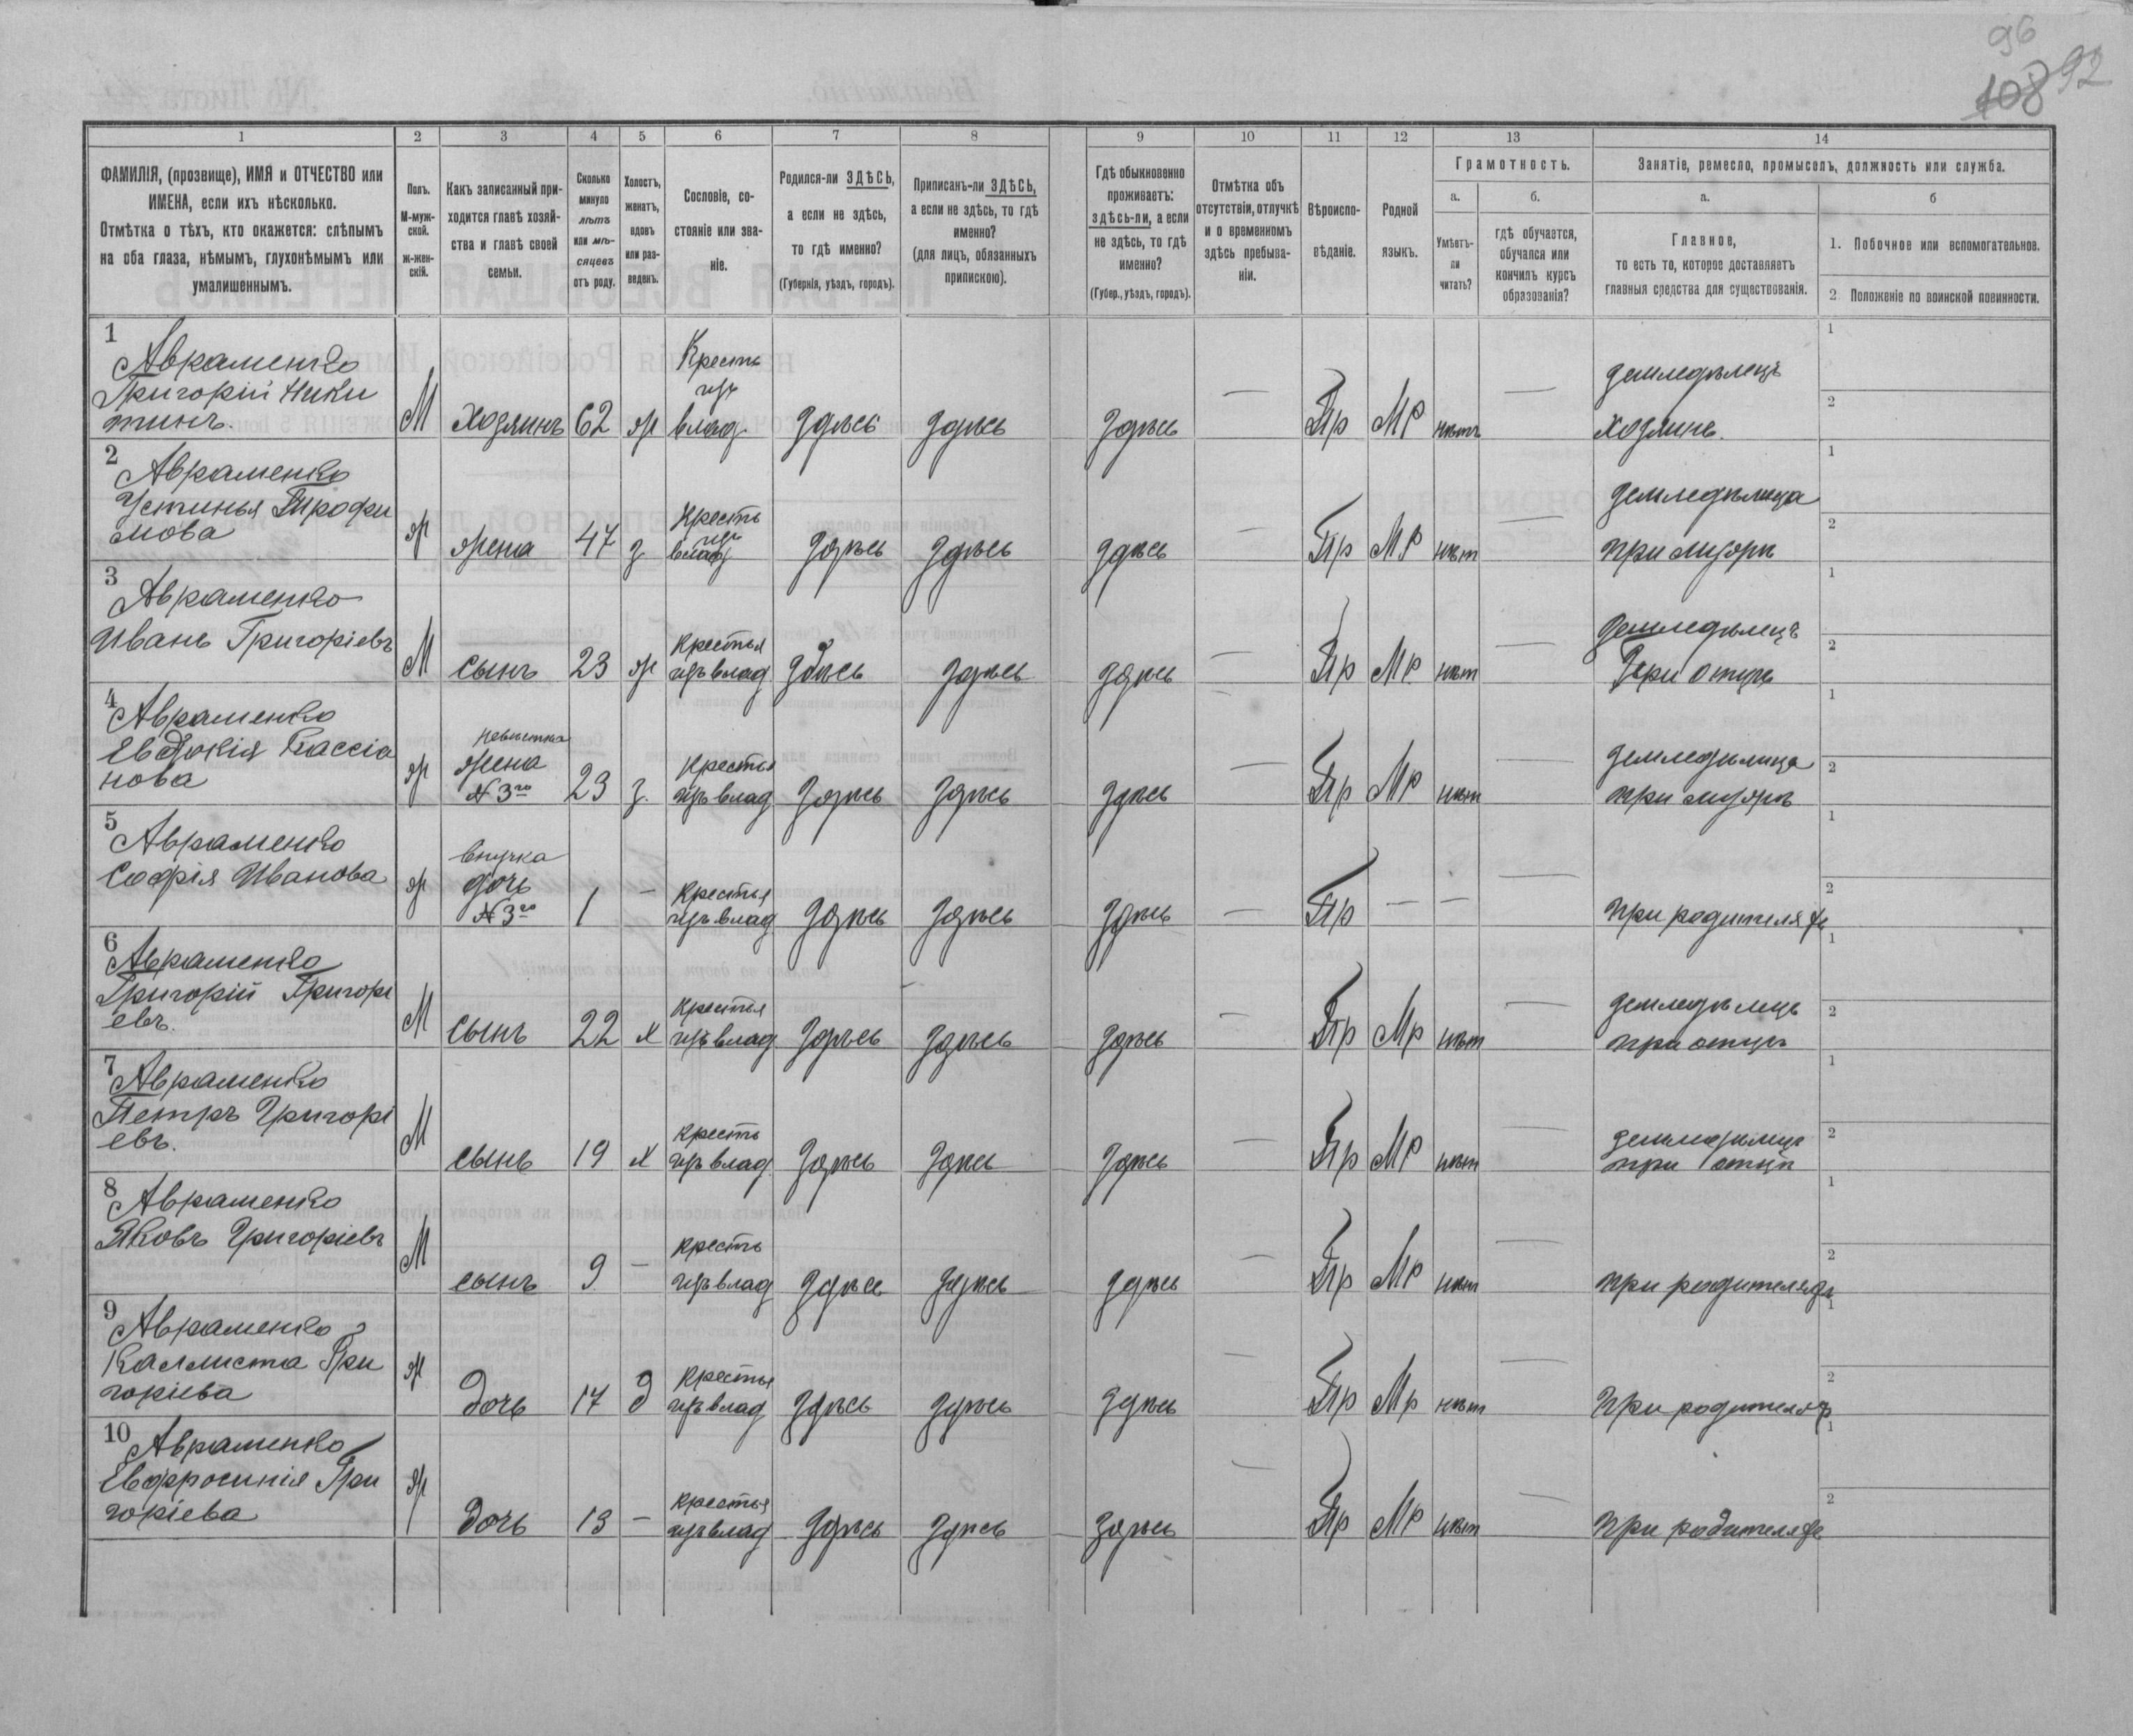 96
108 92
1 2 3 4 5 6 7 8 9 10 11 12 13 14
ФАМИЛІЯ, (прозвище), ИМЯ и ОТЧЕСТВО или ИМЕНА, если ихъ нѣсколько.
Отмѣтка о тѣхъ, кто окажется: слѣпымъ на оба глаза, нѣмымъ, глухонѣмымъ или умалишеннымъ.
Полъ. М-мужской. Ж-женскій.
Какъ записанный приходится главѣ хозяйства и главѣ своей семьи.
Сколько минуло лѣтъ или мѣсяцевъ отъ роду.
Холостъ, женатъ, вдовъ или разведенъ.
Сословіе, состояніе или званіе.
Родился-ли ЗДѢСЬ, а если не здѣсь, то гдѣ именно?
(Губернія, уѣздъ, городъ).
Приписанъ-ли ЗДѢСЬ, а если не здѣсь, то гдѣ именно?
(для лицъ, обязанныхъ припискою).
Гдѣ обыкновенно проживаетъ: здѣсь-ли, а если не здѣсь, то гдѣ именно?
(Губер., уѣздъ, городъ).
Отмѣтка объ отсутствіи, отлучкѣ и о временномъ здѣсь пребываніи.
Вѣроисповѣданіе.
Родной языкъ.
Грамотность.
а. Умѣетъ-ли читать?
б. гдѣ обучается, обучался или кончилъ курсъ образованія?
Занятіе, ремесло, промыселъ, должность или служба.
а. Главное, то есть то, которое доставляетъ главныя средства для существованія.
б
1. Побочное или вспомогательное.
2. Положеніе по воинской повинности.
1 Авраменко Григорій Никитинъ. М хозяинъ 62 ж Крестьизъ влад. здѣсь здѣсь здѣсь — Пр МР нѣтъ — земледѣлецъ хозяинъ. 1 2
2 Авраменко Устинья Трофимова ж жена 47 з Крестьизъ влад здѣсь здѣсь здѣсь — Пр МР нѣт — земледѣлица при мужѣ 1 2
3 Авраменко Иванъ Григоріевъ М сынъ 23 ж Крестья изъ влад здѣсь здѣсь здѣсь — Пр МР нѣт — земледѣлецъ При отцѣ 1 2
4 Авраменко Евдокія Кассіанова ж невѣстка жена №3го 23 з. Крестья изъ влад здѣсь здѣсь здѣсь — Пр МР нѣт — земледѣлица при мужѣ 1 2
5 Авраменко Софія Иванова ж внучка дочь №3го 1 — Крестья изъ влад здѣсь здѣсь здѣсь — Пр — — — при родителях 1 2
6 Авраменко Григорій Григоріевъ. М сынъ 22 х Крестья изъ влад здѣсь здѣсь здѣсь — Пр Мр нѣт — земледѣлецъ при отцѣ 1 2
7 Авраменко Петръ Григоріевъ. М сынъ 19 х кресть изъ влад. здѣсь здѣсь здѣсь — Пр МР нѣт — земледѣлецъ при отцѣ 1 2
8 Авраменко Яковъ Григоріевъ М сынъ 9 — кресть изъ влад здѣсь здѣсь здѣсь — Пр МР нѣт — при родителях 1 2
9 Авраменко Каллиста Григоріева ж дочь 17 д крестья изъ влад здѣсь здѣсь здѣсь — Пр Мр нѣт — при родителях 1 2
10 Авраменко Евфросинія Григоріева ж дочь 13 — крестья изъ влад здѣсь здѣсь здѣсь — Пр МР нѣт — при родителях 1 2